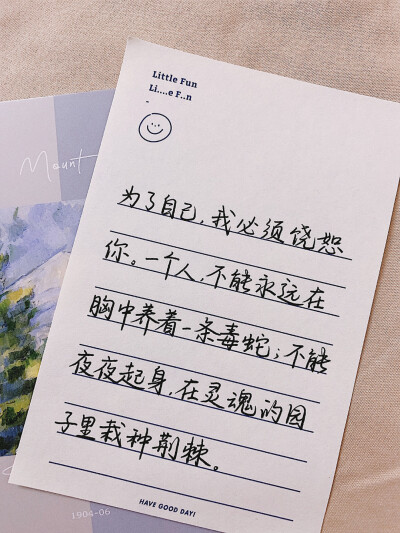 Little Fun
Li....e F..n
Mount
为了自己，我必须饶恕
你。一个人，不能永远在
胸中养着一条毒蛇；不能
夜夜起身，在灵魂的园
子里栽种荆棘。
HAVE GOOD DAY!
1904-06